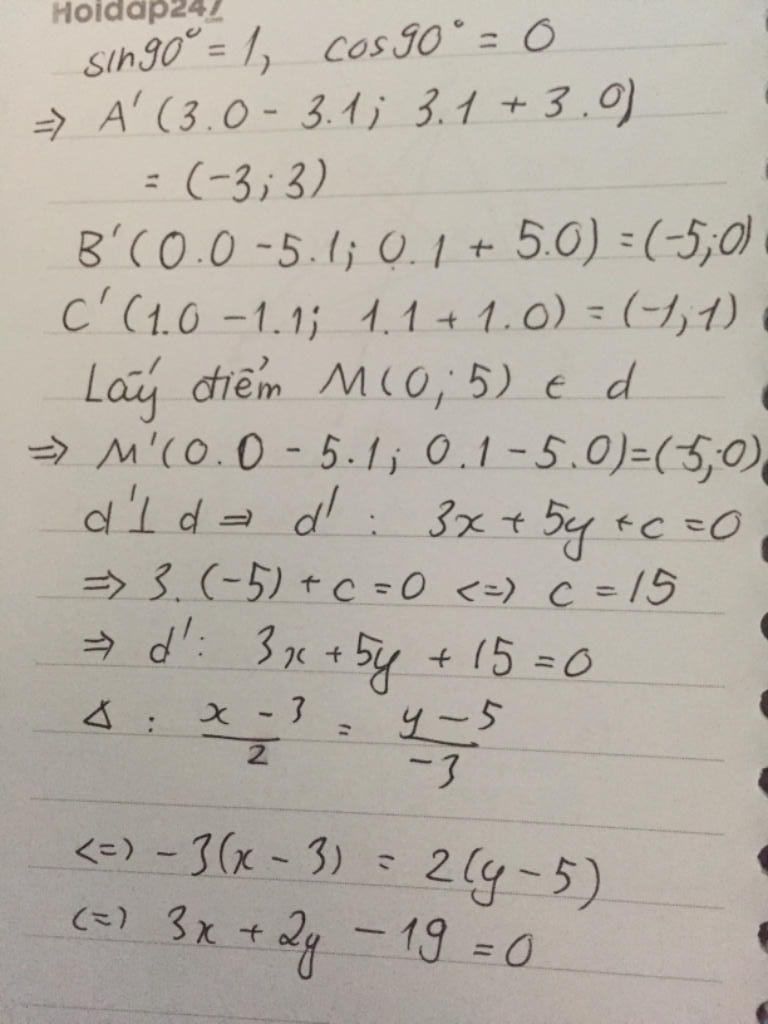 Hoidap247
sin90° = 1, cos90° = 0
=> A'(3.0 - 3.1; 3.1 + 3.0)
= (-3;3)
B'(0.0 - 5.1; 0.1 + 5.0) = (-5;0)
C'(1.0 - 1.1; 1.1 + 1.0) = (-1;1)
Lấy điểm M(0;5) ∈ d
=> M'(0.0 - 5.1; 0.1 - 5.0) = (-5;0)
d'⊥ d => d' : 3x + 5y + c = 0
=> 3.(-5) + c = 0 <=> c = 15
=> d': 3x + 5y + 15 = 0
Δ : (x - 3)/2 = (y - 5)/-3
<=> -3(x - 3) = 2(y - 5)
<=> 3x + 2y - 19 = 0